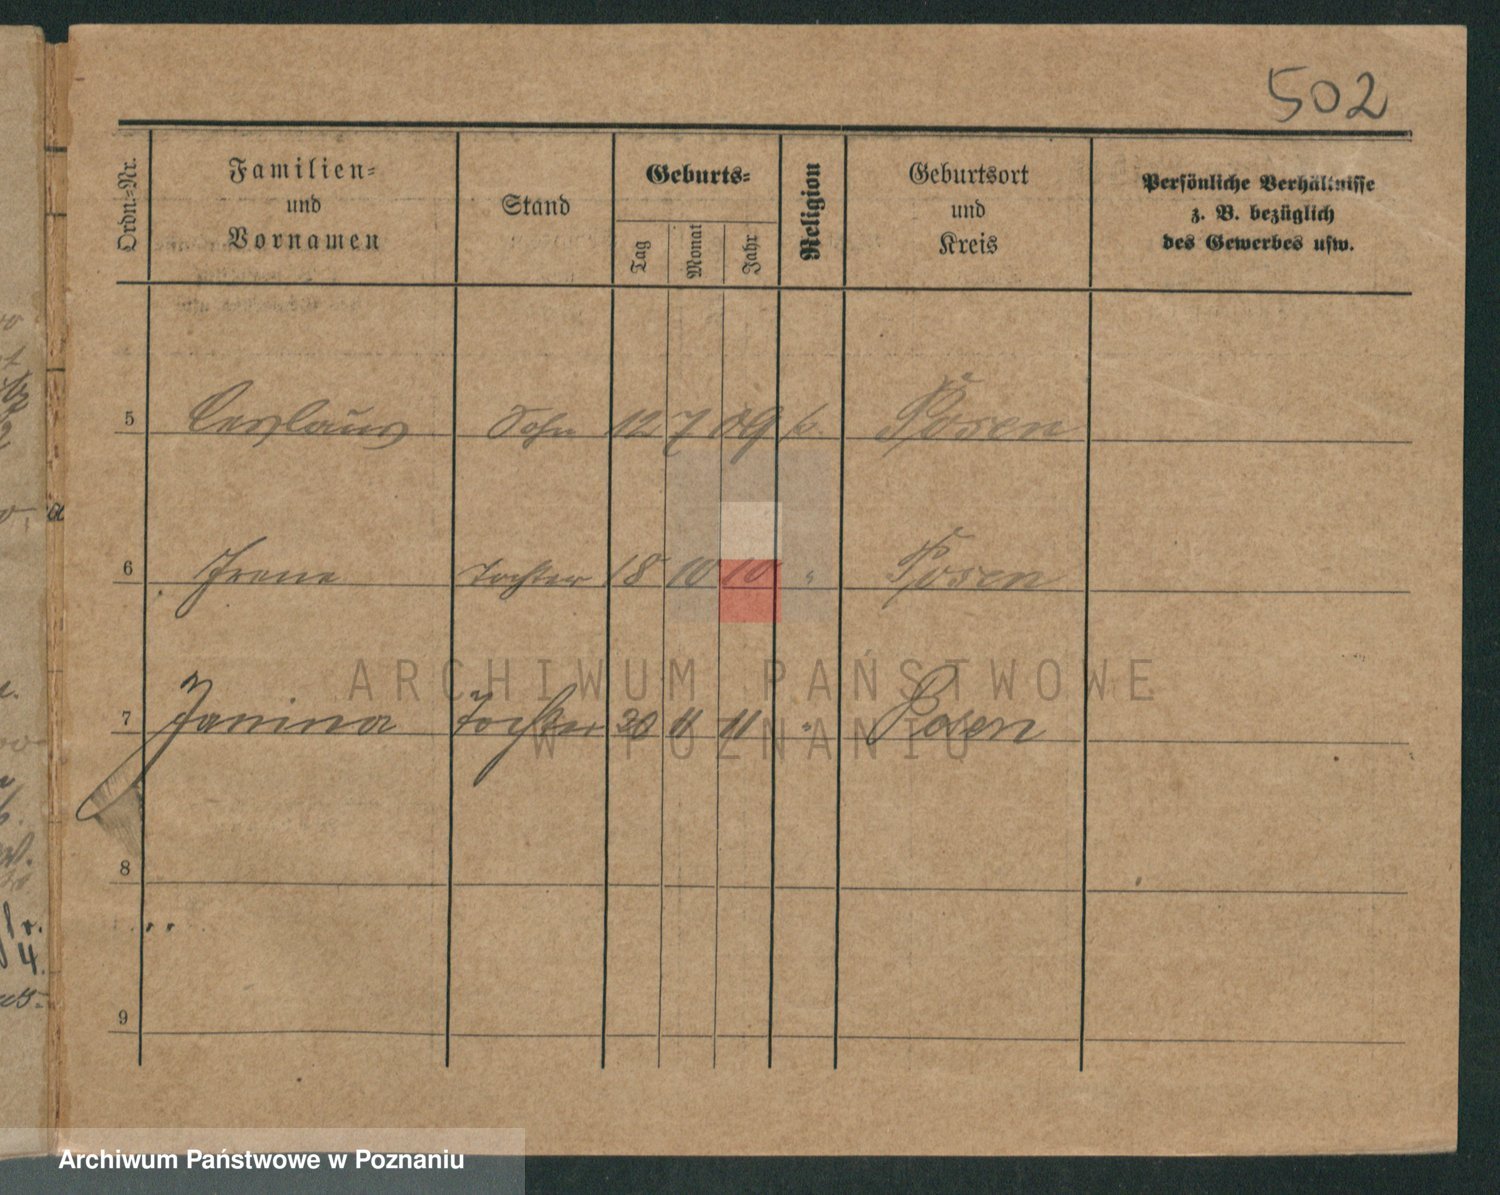 502
Ordn.-Nr.
Familien-
und
Vornamen
Stand
Geburts-
Tag
Monat
Jahr
Religion
Geburtsort
und
Kreis
Persönliche Verhältnisse
z. B. bezüglich
des Gewerbes usw.
5 Ceslaus Sohn 12 7 09 k. Posen
6 Irene Tochter 18 10 10 " Posen
7 Janina Tochter 30 11 11 " Posen
8
9
ARCHIWUM PAŃSTWOWE
W POZNANIU
Archiwum Państwowe w Poznaniu